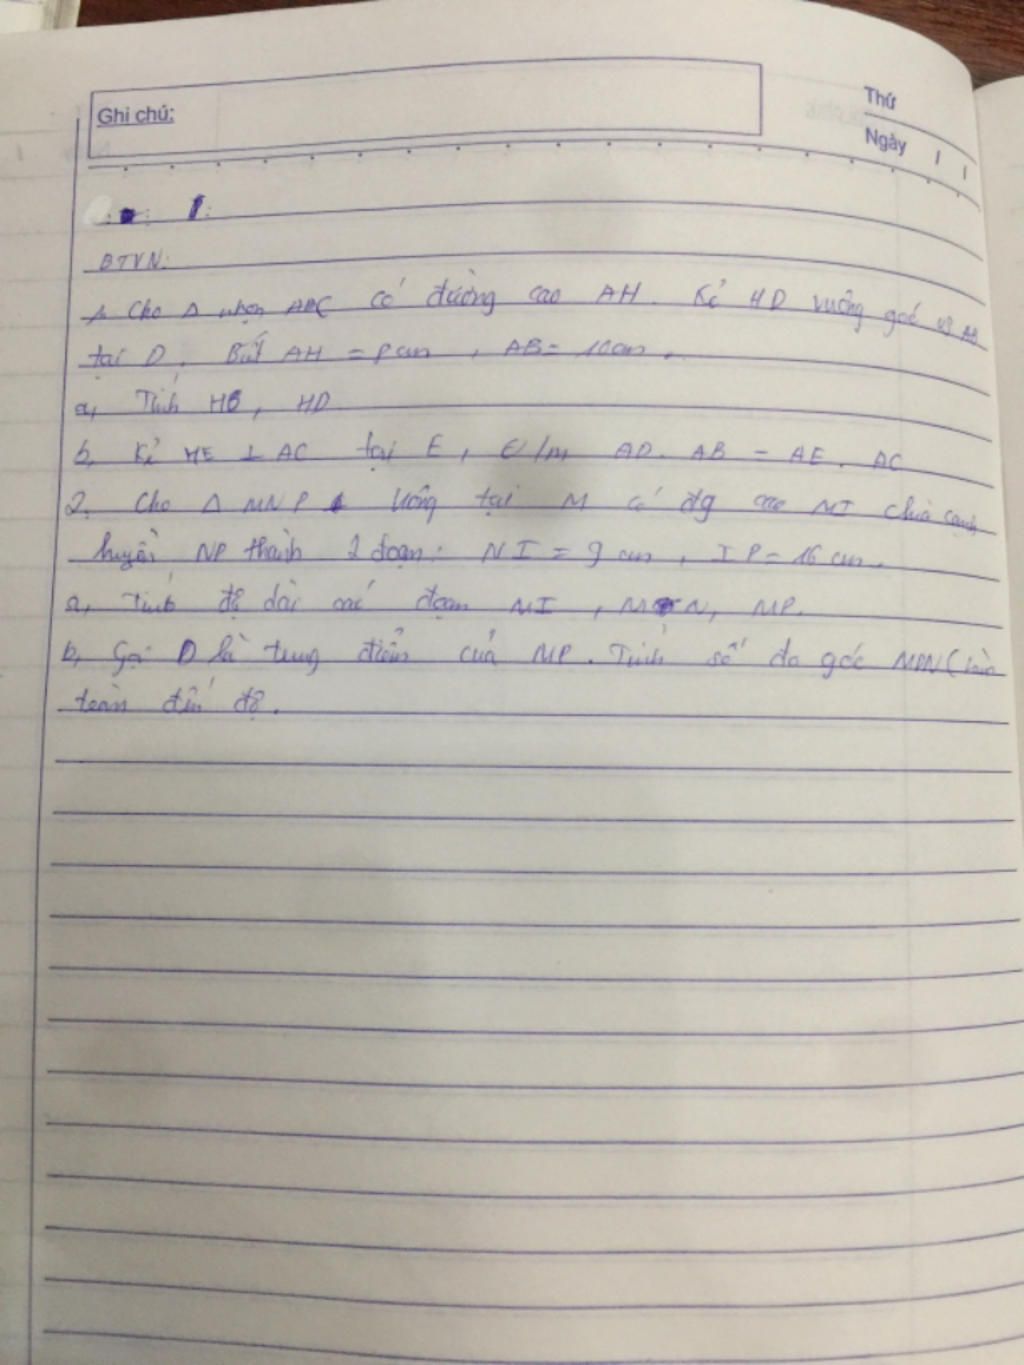 Ghi chú:
Thứ
Ngày / /
BTVN:
1. Cho Δ nhọn ABC có đường cao AH. Kẻ HD vuông góc với AB
tại D. Biết AH = 8cm, AB = 10cm.
a, Tính HB, HD
b, Kẻ HE ⊥ AC tại E, C/m AD. AB = AE. AC
2. Cho Δ MNP vuông tại M có đg cao MI chia cạnh
huyền NP thành 2 đoạn: NI = 9 cm, IP = 16 cm.
a, Tính độ dài các đoạn MI, MN, MP.
b, Gọi D là trung điểm của MP. Tính số đo góc MDN (làm
toàn đến độ.